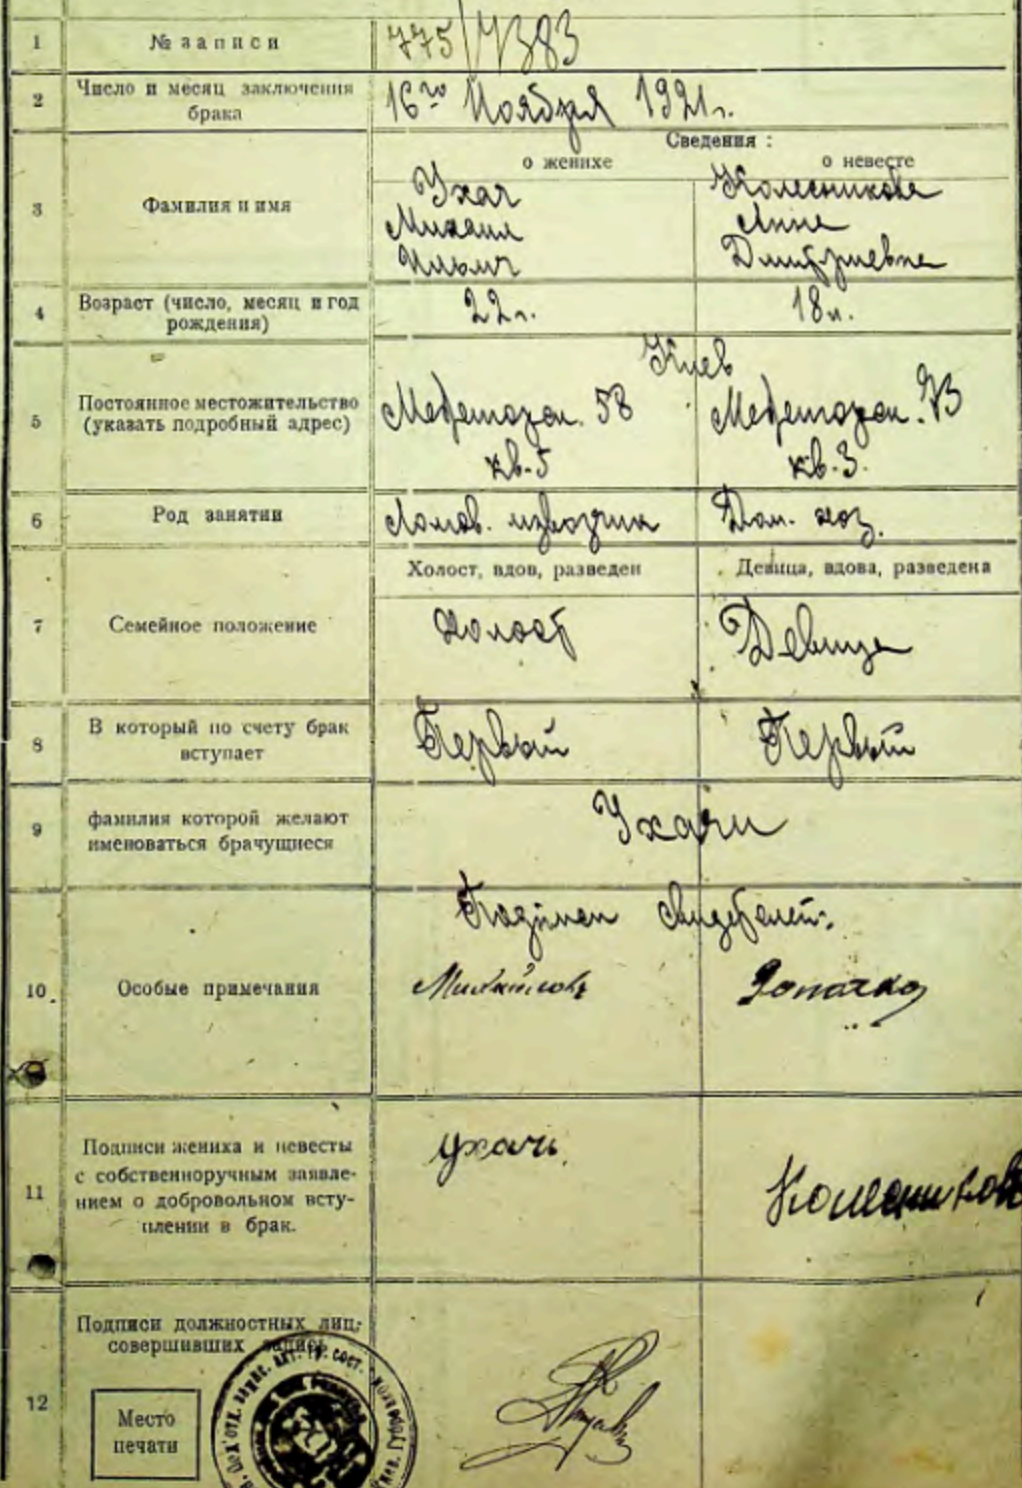 1 № записи 775/7383
2 Число и месяц заключения брака 16го Ноября 1921г.
Сведения :
о женихе о невесте
3 Фамилия и имя
Ухач Колесникова
Михаил Анна
Ильич Дмитриевна
4 Возраст (число, месяц и год рождения) 22г. 18л.
Киев
5 Постоянное местожительство (указать подробный адрес)
58
кв. 5 кв. 3.
6 Род занятии Ломов. извозчик Дом. хоз.
Холост, вдов, разведен Девица, вдова, разведена
7 Семейное положение Холост Девица
8 В который по счету брак вступает Первый Первый
9 фамилия которой желают именоваться брачущиеся Ухачи
10. Особые примечания
Михайлов
11 Подписи жениха и невесты
с собственноручным заявле-
нием о добровольном всту-
плении в брак.
Ухачь
Колесников
12 Подписи должностных лиц,
совершивших запись
Место
печати